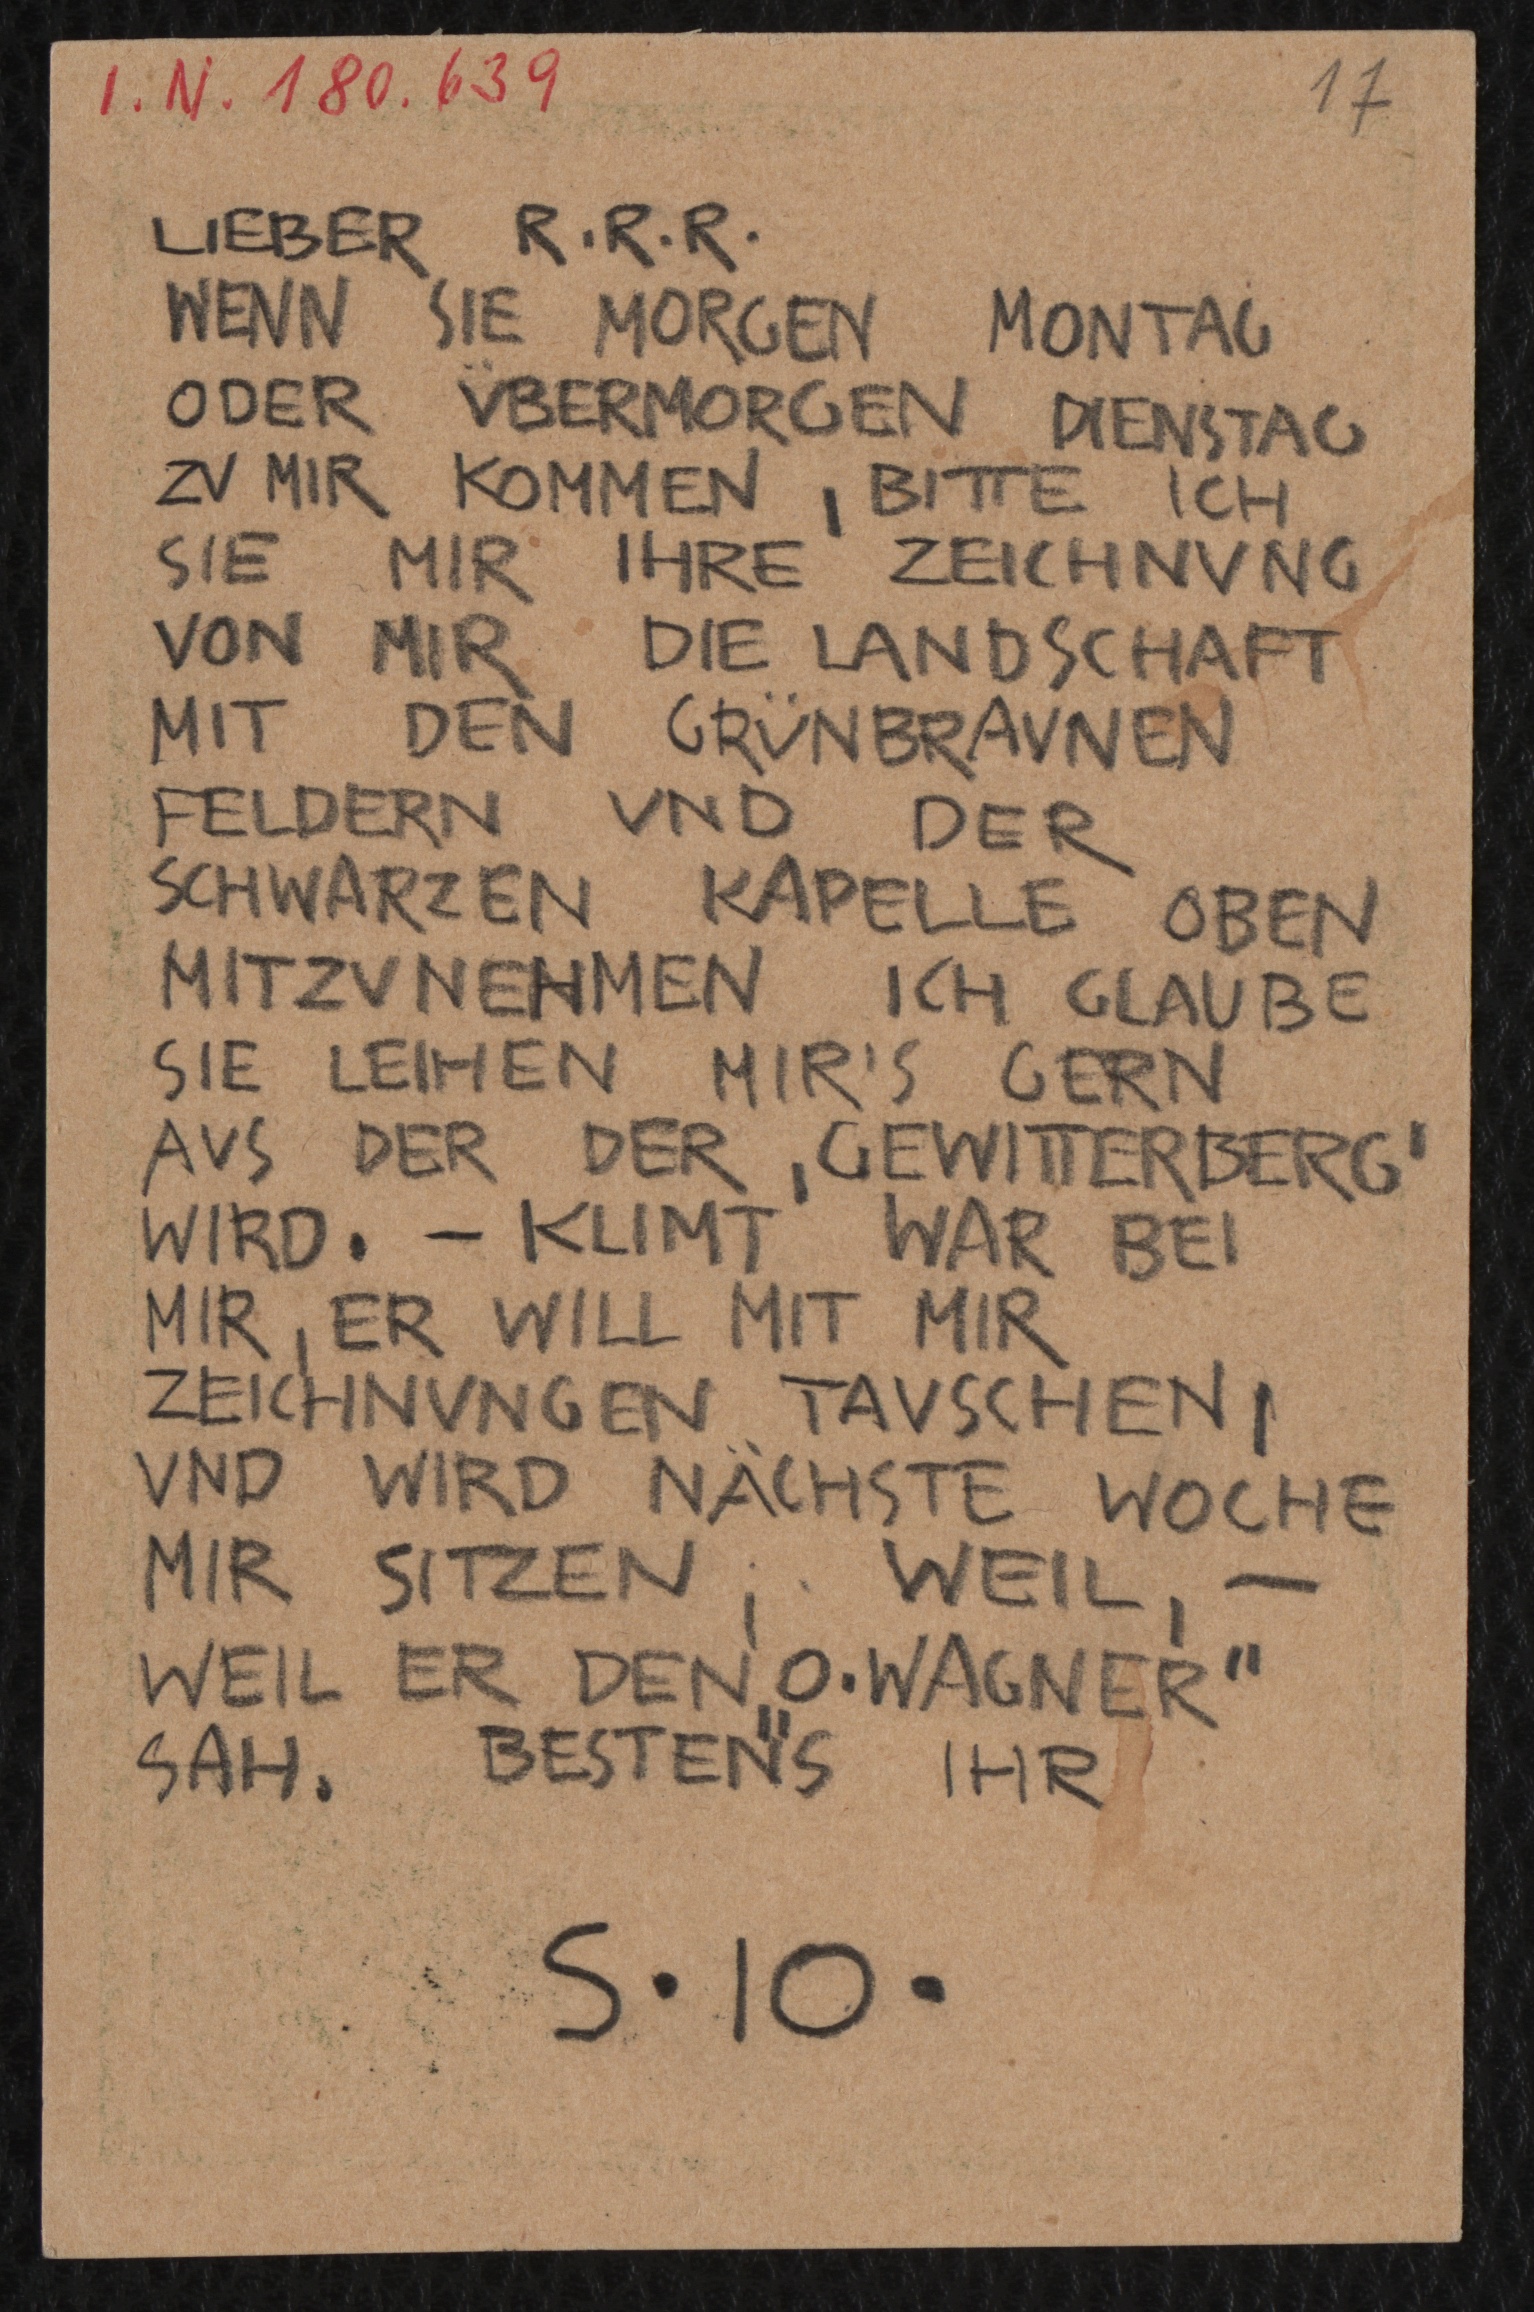 I.N. 180.639
17
LIEBER R.R.R.
WENN SIE MORGEN MONTAG
ODER ÜBERMORGEN DIENSTAG
ZV MIR KOMMEN, BITTE ICH
SIE MIR IHRE ZEICHNVNG
VON MIR DIE LANDSCHAFT
MIT DEN GRÜNBRAVNEN
FELDERN VND DER
SCHWARZEN KAPELLE OBEN
MITZVNEHMEN ICH GLAUBE
SIE LEIHEN MIR'S GERN
AVS DER DER ‚GEWITTERBERG'
WIRD. – KLIMT WAR BEI
MIR, ER WILL MIT MIR
ZEICHNVNGEN TAVSCHEN,
VND WIRD NÄCHSTE WOCHE
MIR SITZEN; WEIL, –
WEIL ER DEN „O.WAGNER"
SAH. BESTENS IHR
S.10.